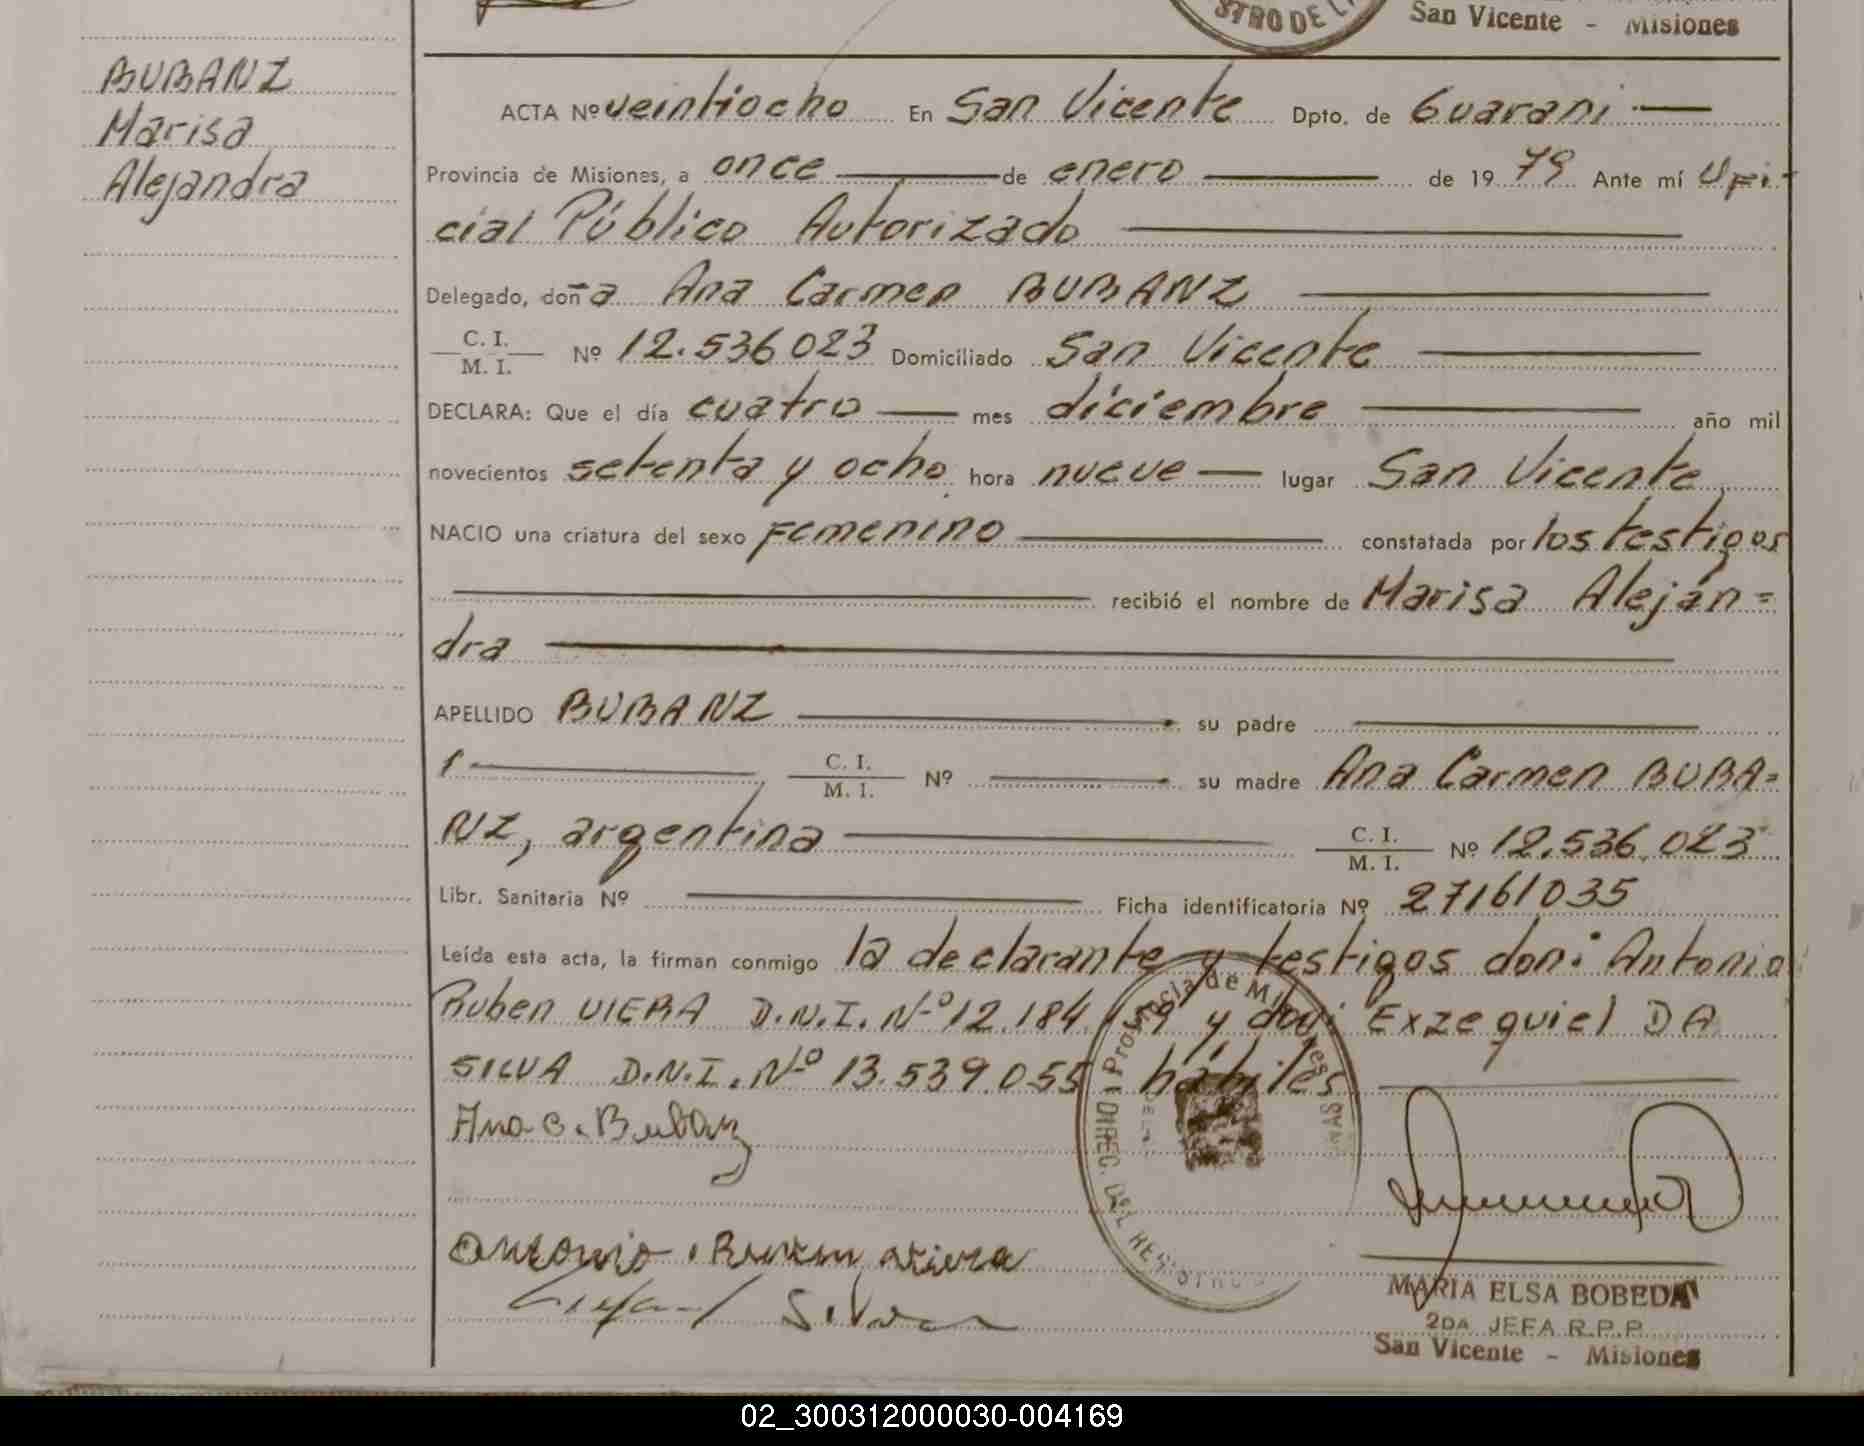 STRO DE L
San Vicente - Misiones
BUBANZ
Marisa
Alejandra
ACTA Nº veintiocho En San Vicente Dpto. de Guarani
Provincia de Misiones, a once de enero de 1979 Ante mí Ofi-
cial Público Autorizado
Delegado, doña Ana Carmen BUBANZ
C. I.
M. I. Nº 12.536.023 Domiciliado San Vicente
DECLARA: Que el día cuatro mes diciembre año mil
novecientos setenta y ocho hora nueve lugar San Vicente
NACIO una criatura del sexo Femenino constatada por los testigos
recibió el nombre de Marisa Alejan=
dra
APELLIDO BUBANZ su padre
C. I.
M. I. Nº su madre Ana Carmen BUBA=
NZ, argentina C. I.
M. I. Nº 12.536.023
Libr. Sanitaria Nº Ficha identificatoria Nº 27161035
Leída esta acta, la firman conmigo la declarante y testigos don: Antonio
Ruben VIERA D.N.I. Nº 12.184 y don: Exzequiel DA
SILVA D.N.I. Nº 13.539.055 hábiles
Ana C. Bubanz
Provincia de Misiones
DIREC. DEL REGISTRO
Antonio Ruben
Silva
MARIA ELSA BOBEDA
2DA JEFA R.P.P.
San Vicente - Misiones
02_300312000030-004169